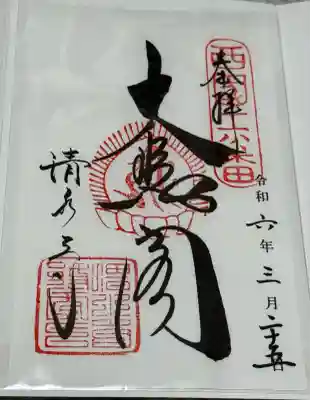 西国十六番
奉拝
令和六年三月二十五
大悲閣
清水寺